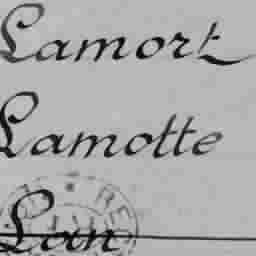 Lamort
Lamotte
Lan
RE